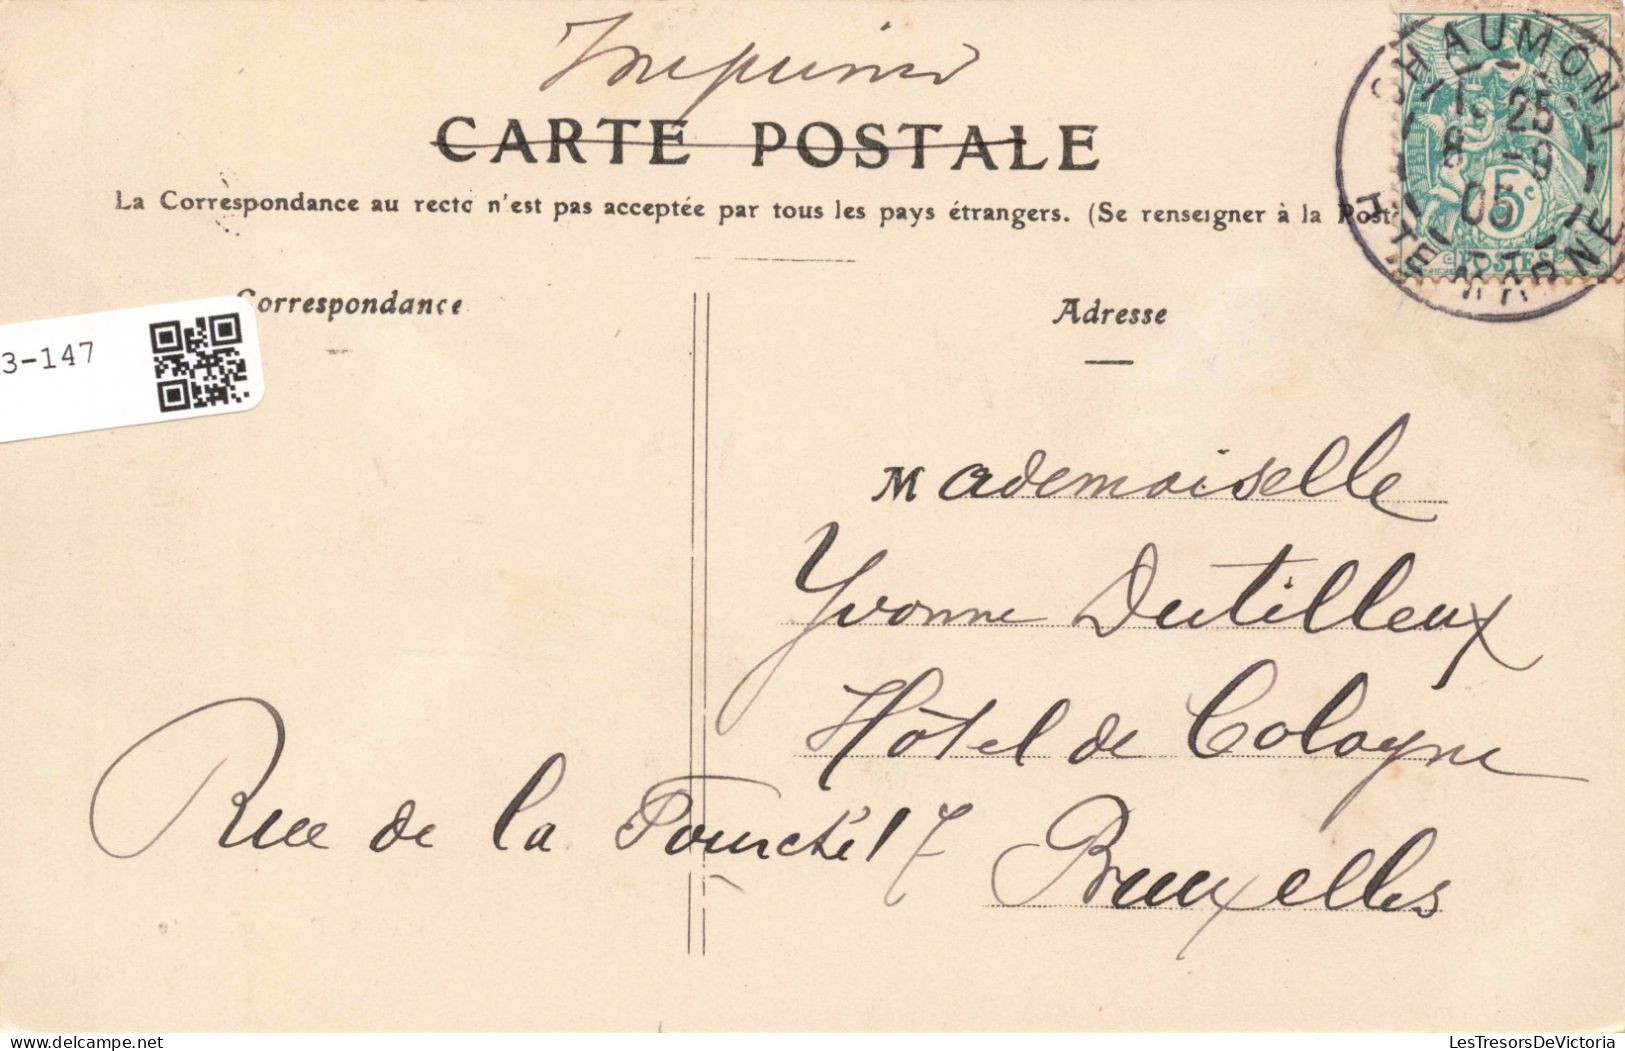 Imprimé
CARTE POSTALE
La Correspondance au recto n'est pas acceptée par tous les pays étrangers. (Se renseigner à la Post
CHAUMONT
25
8 -9
05
HTE MARNE
5c
POSTES
Correspondance
Adresse
3-147
Mademoiselle
Yvonne Dutilleux
Hôtel de Cologne
Rue de la Fourche 17
Bruxelles
LesTresorsDeVictoria
www.delcampe.net